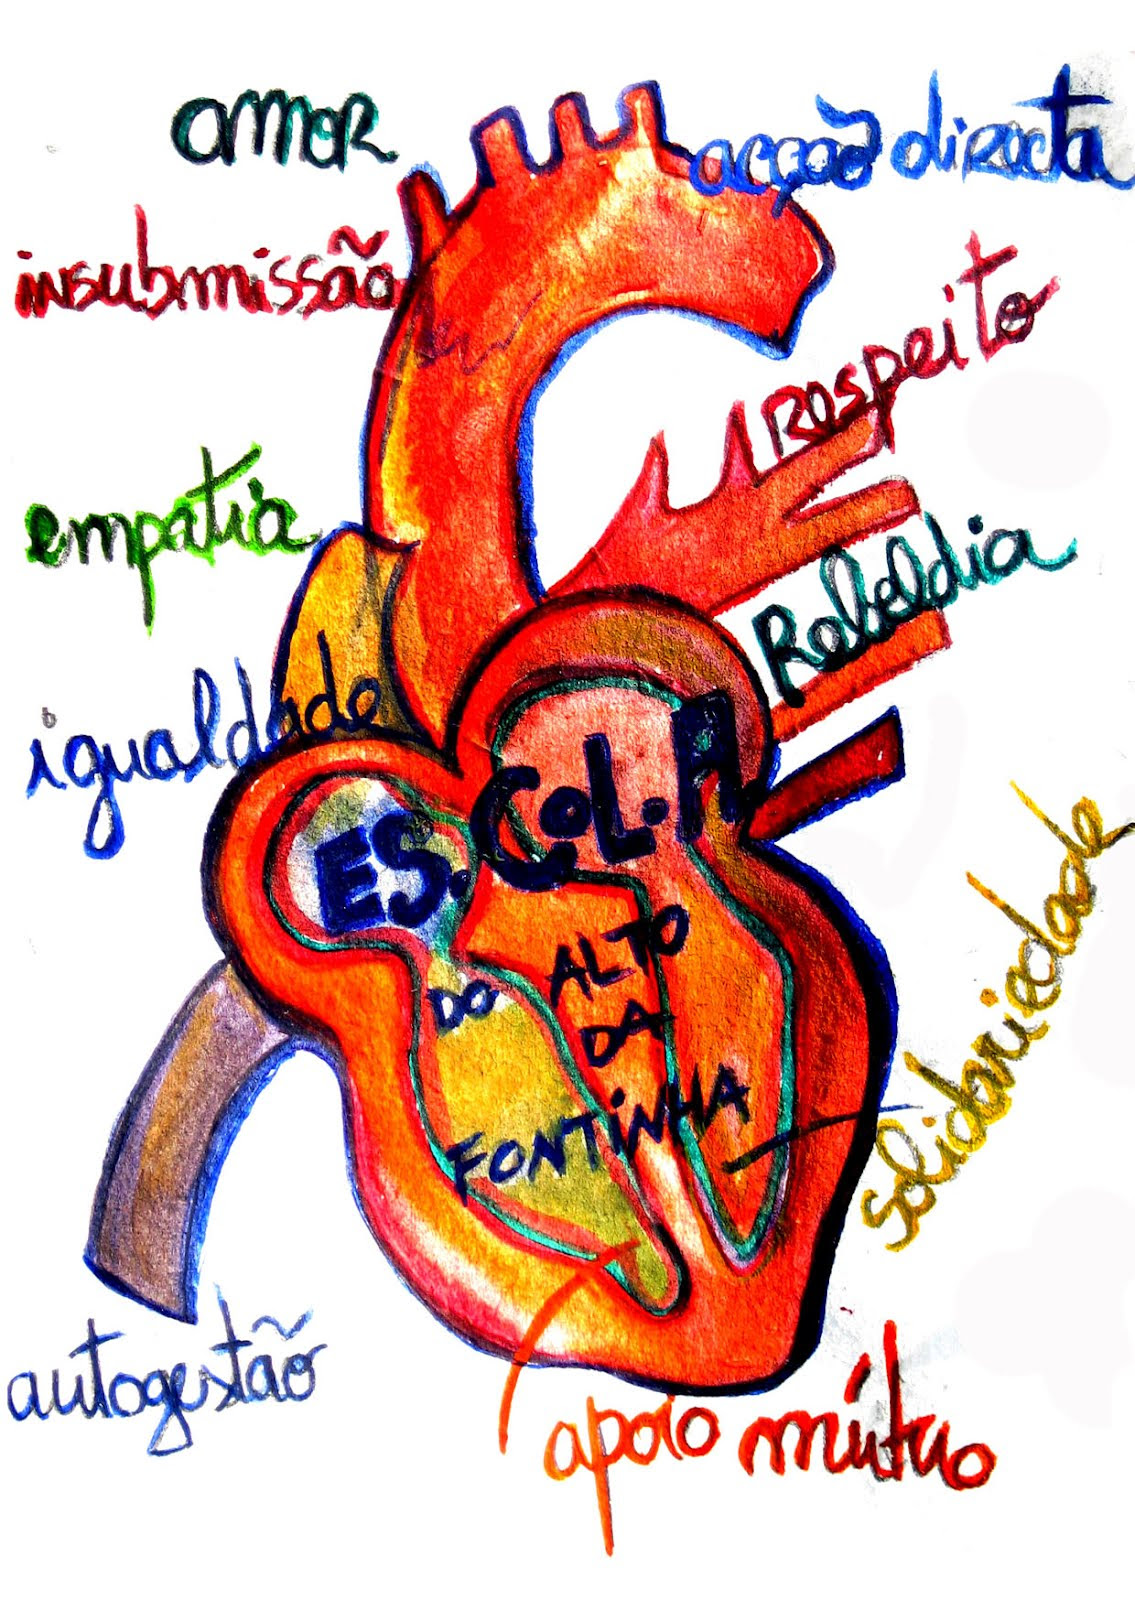 amor
acção directa
insubmissão
Respeito
empatia
Rebeldia
igualdade
ES.COL.A
DO ALTO
DA
FONTINHA
solidariedade
autogestão
apoio mútuo